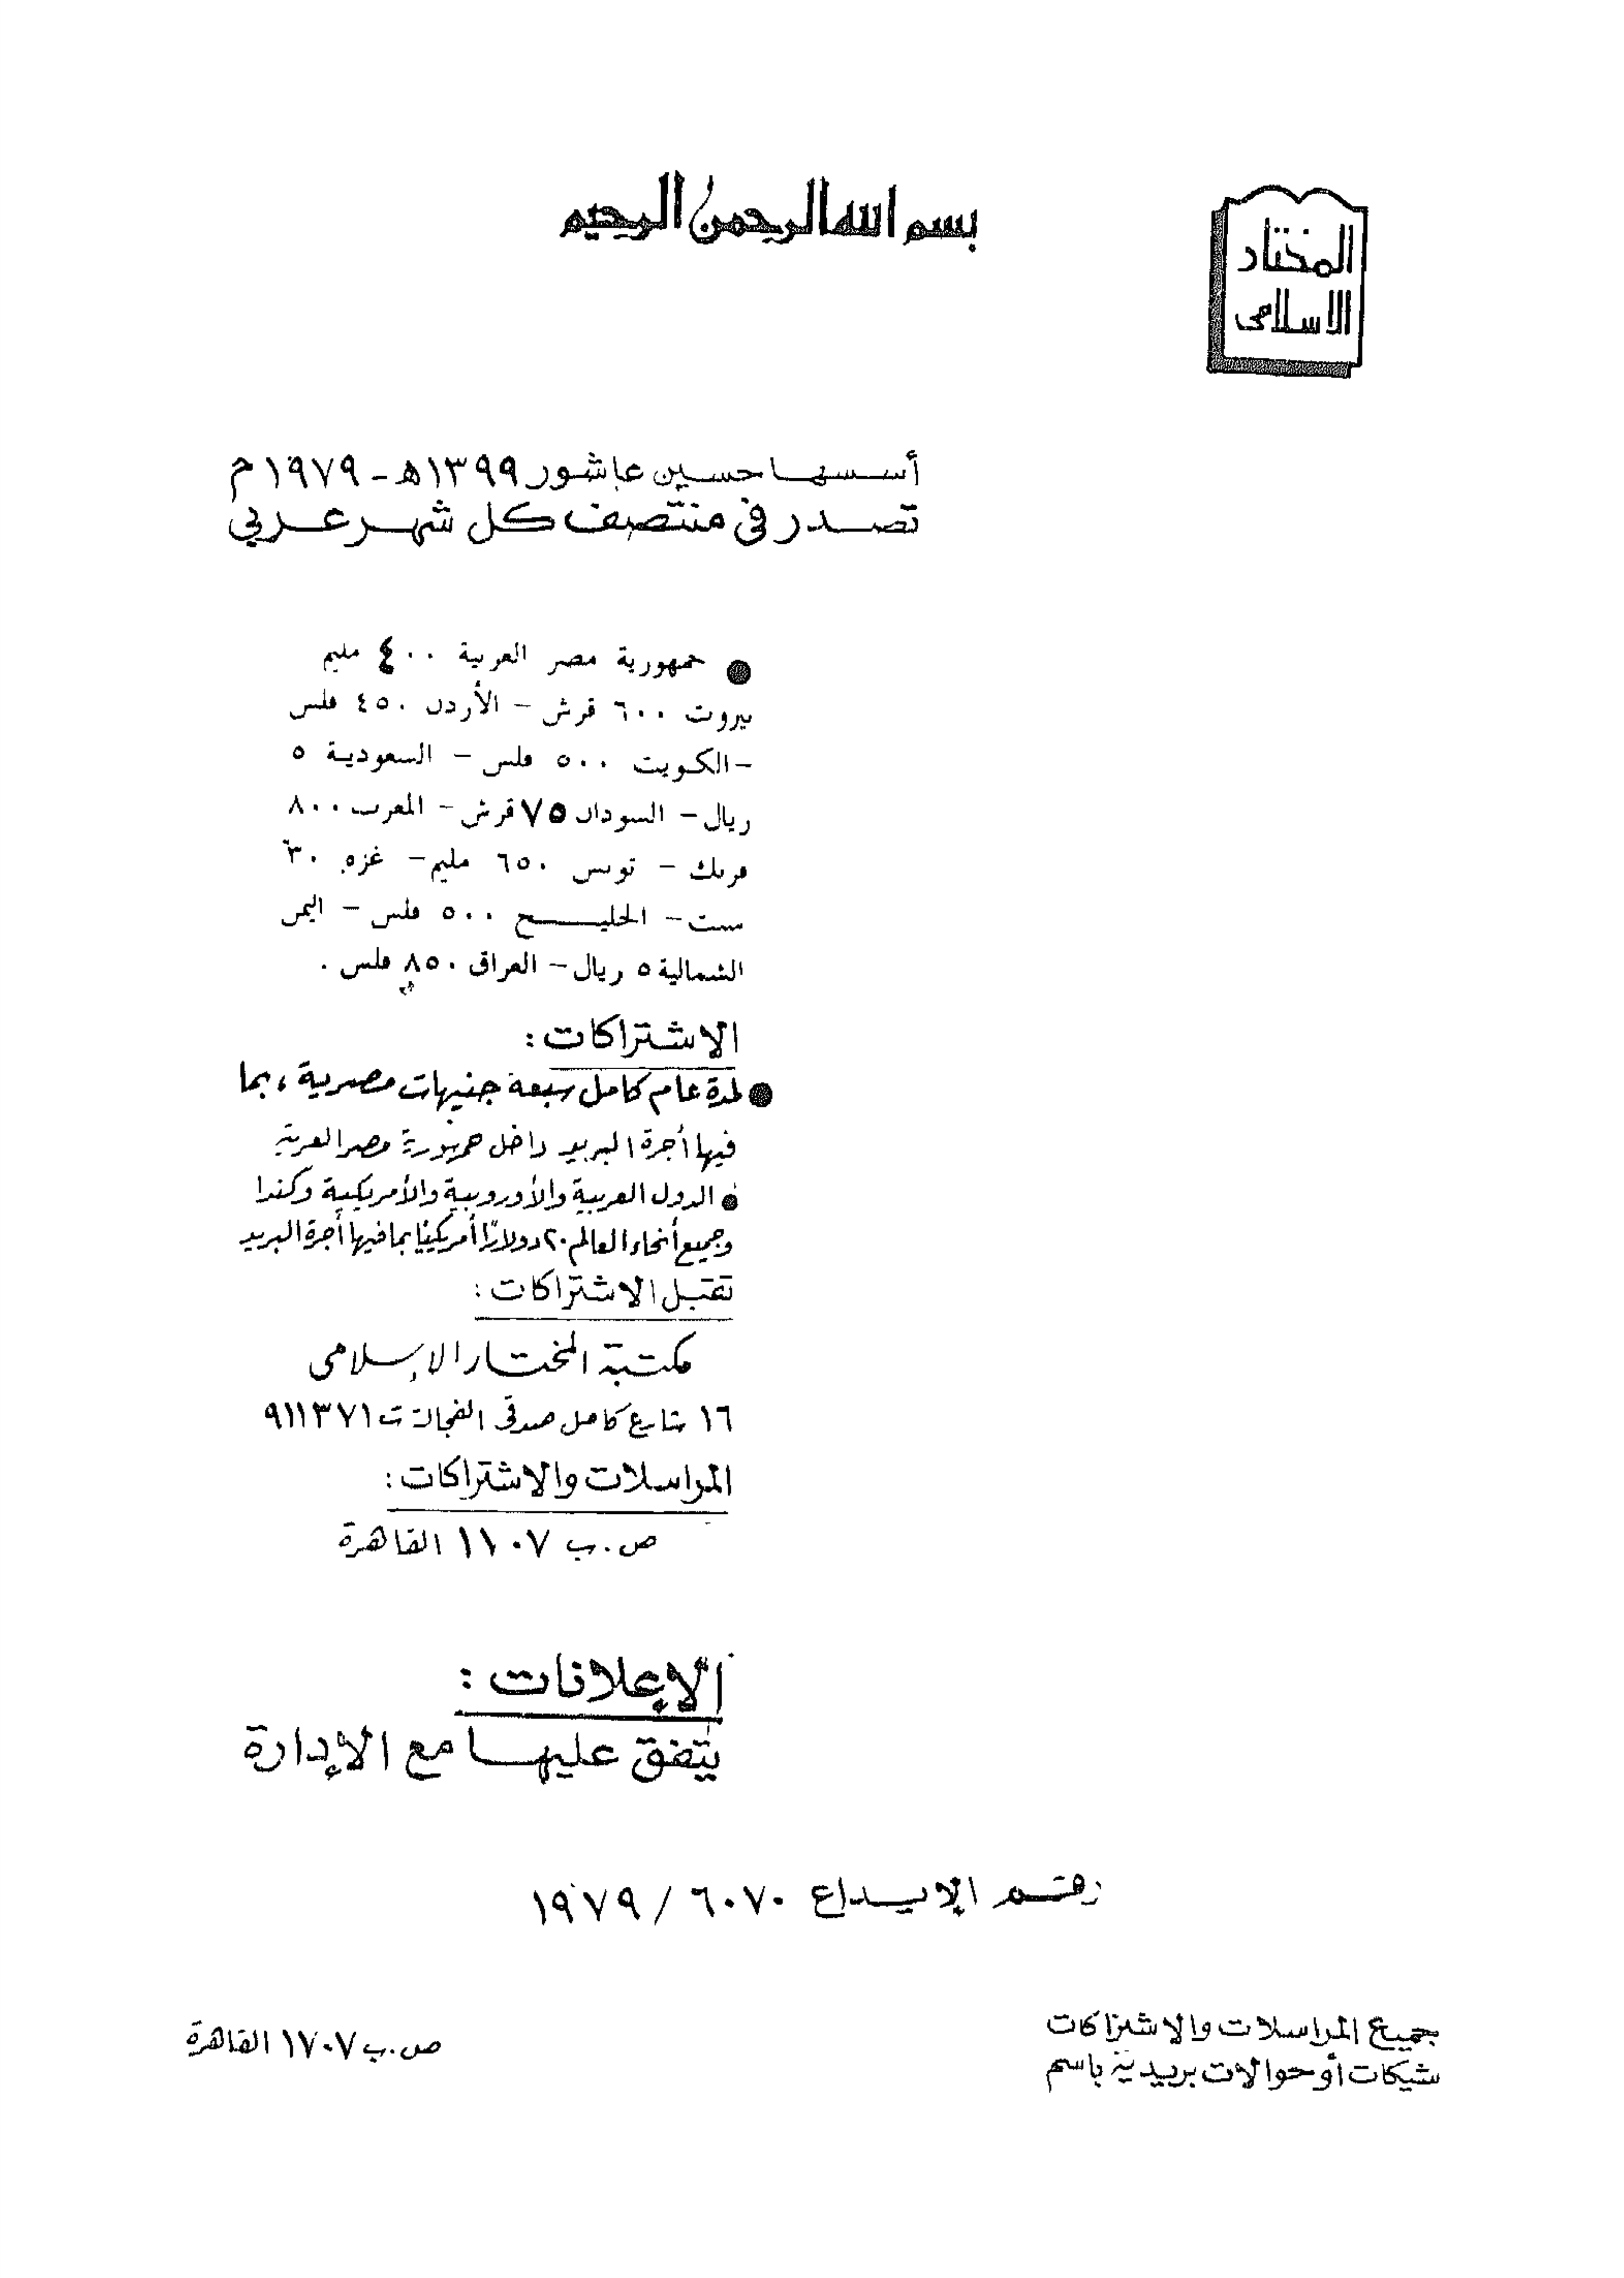 بسم الله الرحمن الرحيم
المختار
الاسلامى
أسسها حسين عاشور ١٣٩٩هـ - ١٩٧٩م
تصدر في منتصف كل شهر عربي
● جمهورية مصر العربية ٤٠٠ مليم
بيروت ٦٠٠ قرش - الأردن ٤٥٠ فلس
- الكويت ٥٠٠ فلس - السعودية ٥
ريال - السودان ٧٥ قرش - المغرب ٨٠٠
فرنك - تونس ٦٥٠ مليم - غزه ٣٠
سنت - الخليج ٥٠٠ فلس - اليمن
الشمالية ٥ ريال - العراق ٨٥٠ فلس .
الاشتراكات :
● لمدة عام كامل سبعة جنيهات مصرية ، بما
فيها أجرة البريد داخل جمهورية مصر العربية
● الدول العربية والأوروبية والأمريكية وكندا
وجميع أنحاء العالم ٢٠ دولارًا أمريكيًا بما فيها أجرة البريد
تقبل الاشتراكات :
مكتبة المختار الإسلامى
١٦ شارع كامل صدقى الفجالة ت ٩١١٣٧١
المراسلات والاشتراكات :
ص . ب ١١٠٧ القاهرة
الإعلانات :
يتفق عليها مع الإدارة
رقم الإيداع ٦٠٧٠ / ١٩٧٩
جميع المراسلات والاشتراكات
شيكات أو حوالات بريدية باسم
ص . ب ١٧٠٧ القاهرة